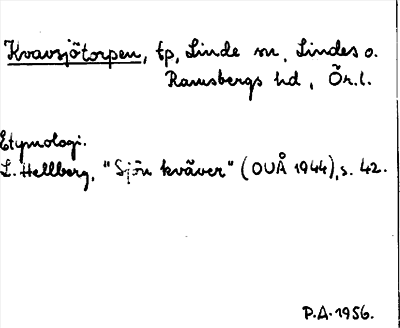 Kvavsjötorpen, tp, Linde sn, Lindes o.
Ramsbergs hd, Ör.l.
Etymologi.
L. Hellberg, "Sjön kväver" (OUÅ 1944), s. 42.
P.A. 1956.